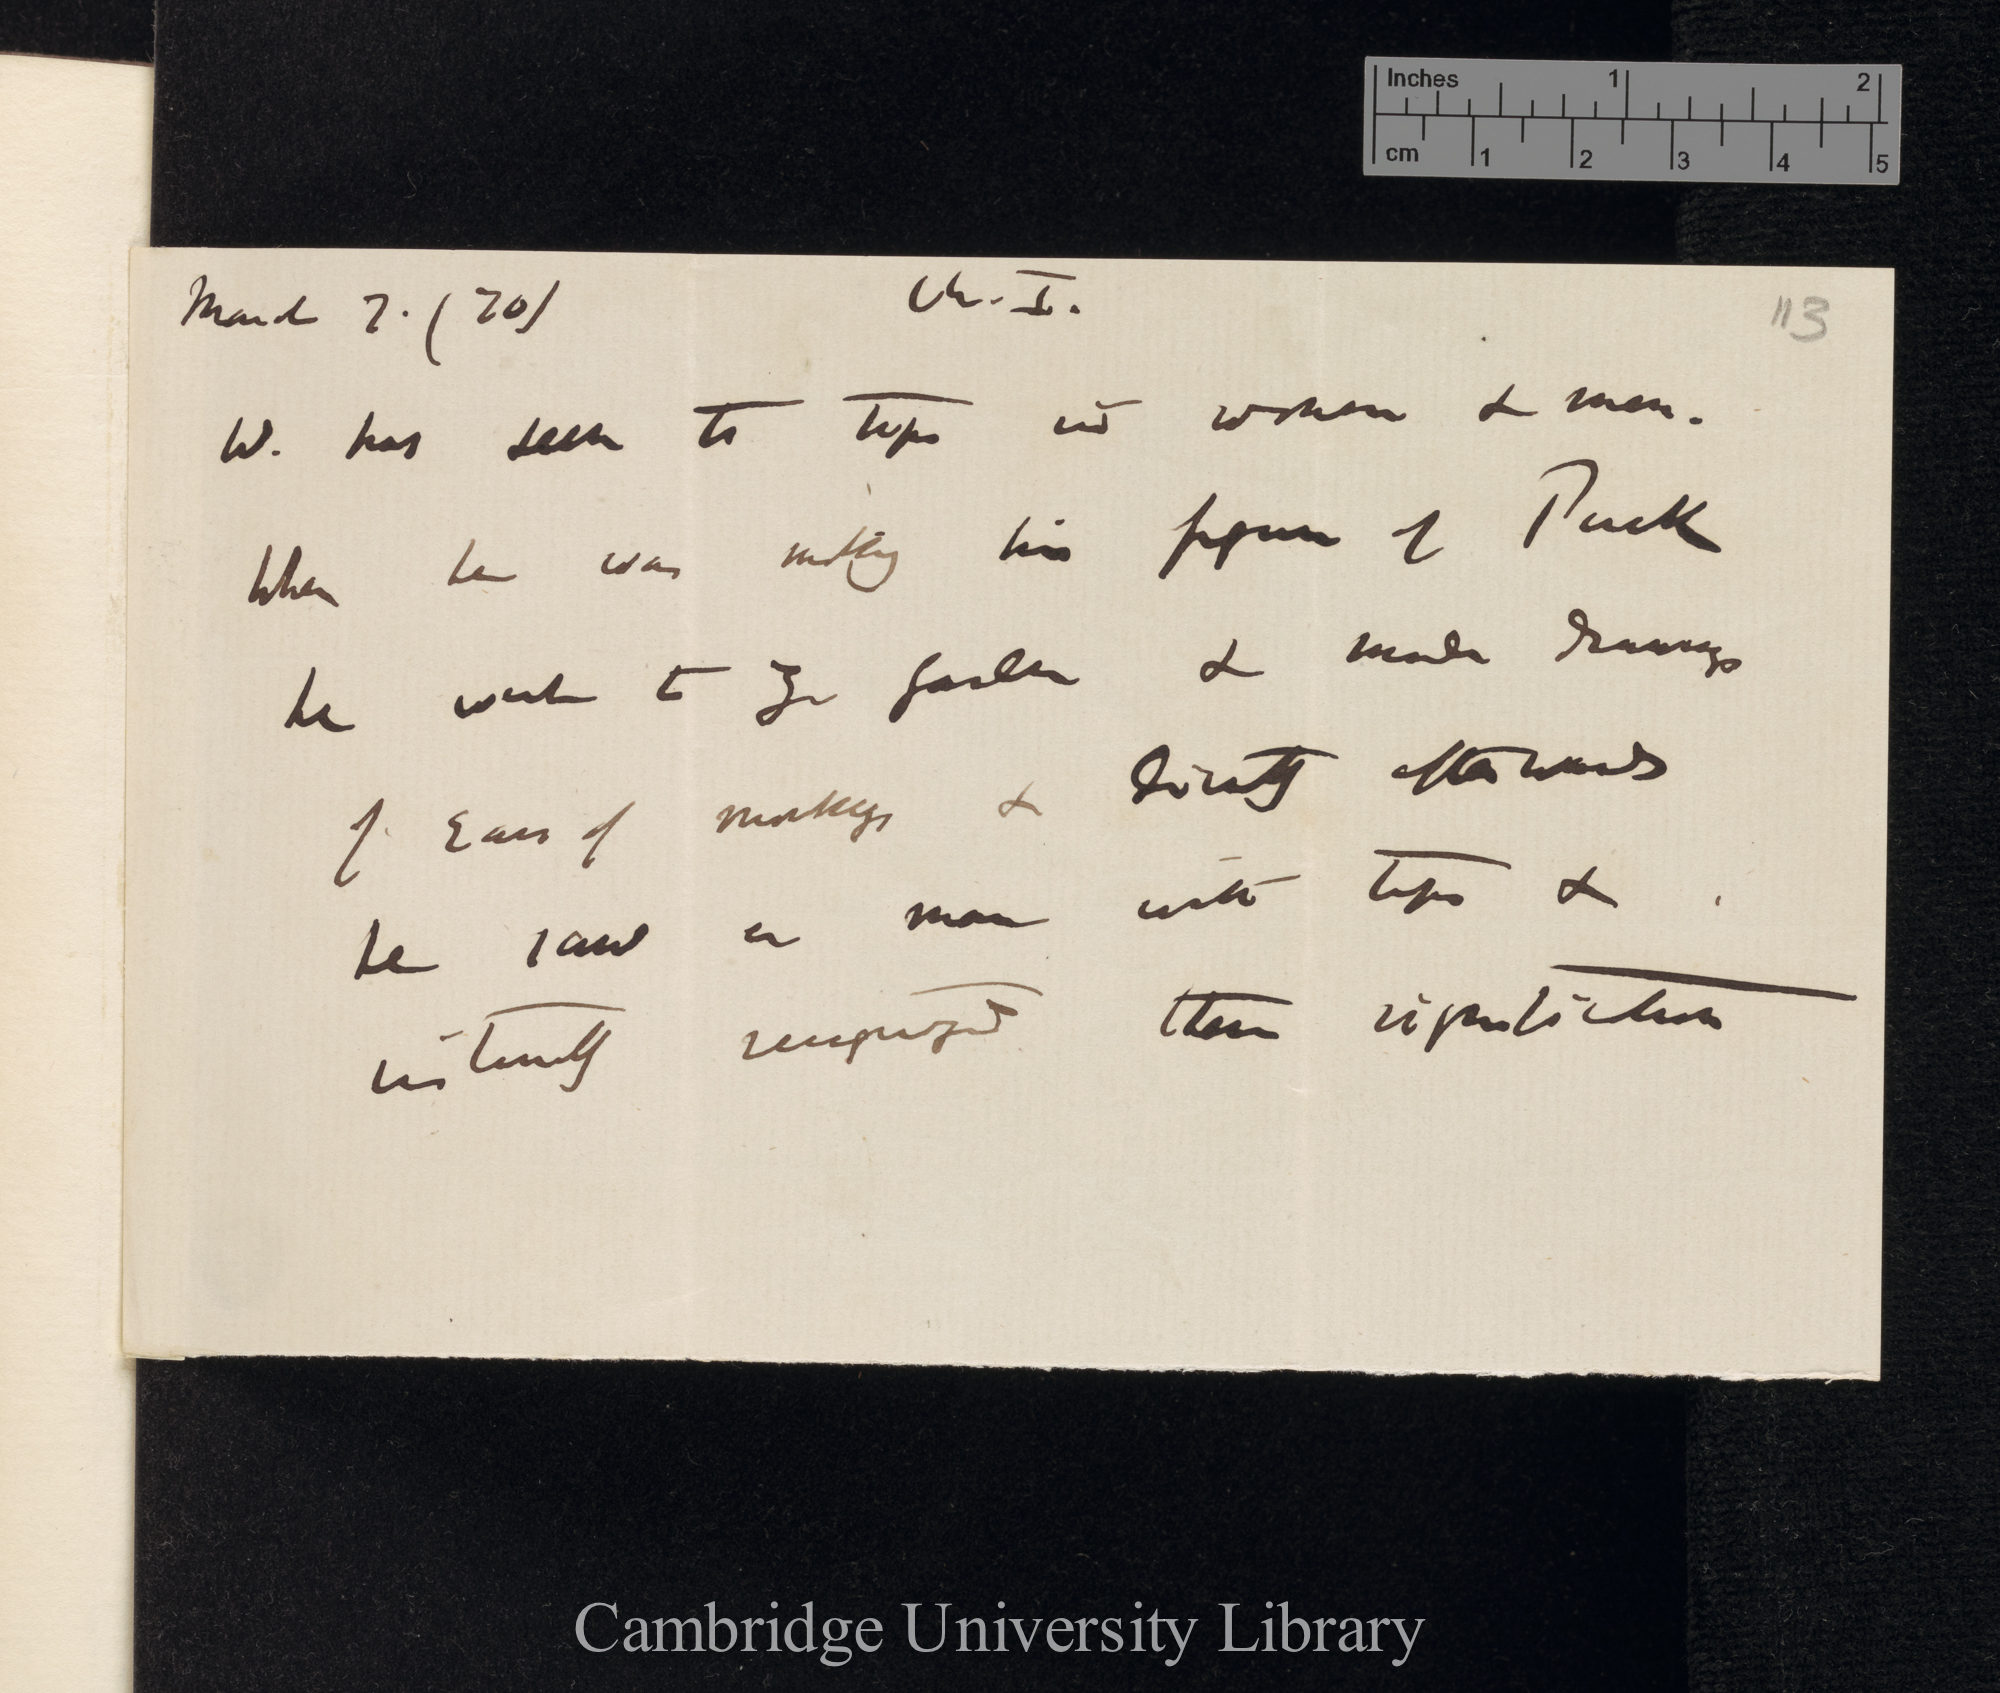 Inches 1 2
cm 1 2 3 4 5
March 7. (70) Ch. I. 113
W. has seen the tips in women & men.
When he was making his figure of Puck
he went to Zoo Garden & made drawings
of Ears of monkeys & directly afterwards
he saw a man with tips &
instantly recognized their signification
Cambridge University Library